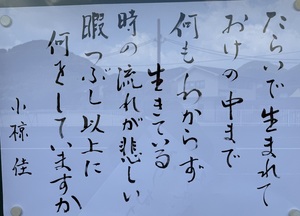 たらいで生まれて
おけの中まで
何もわからず
生きている
時の流れが悲しい
暇つぶし以上に
何をしていますか
小椋佳